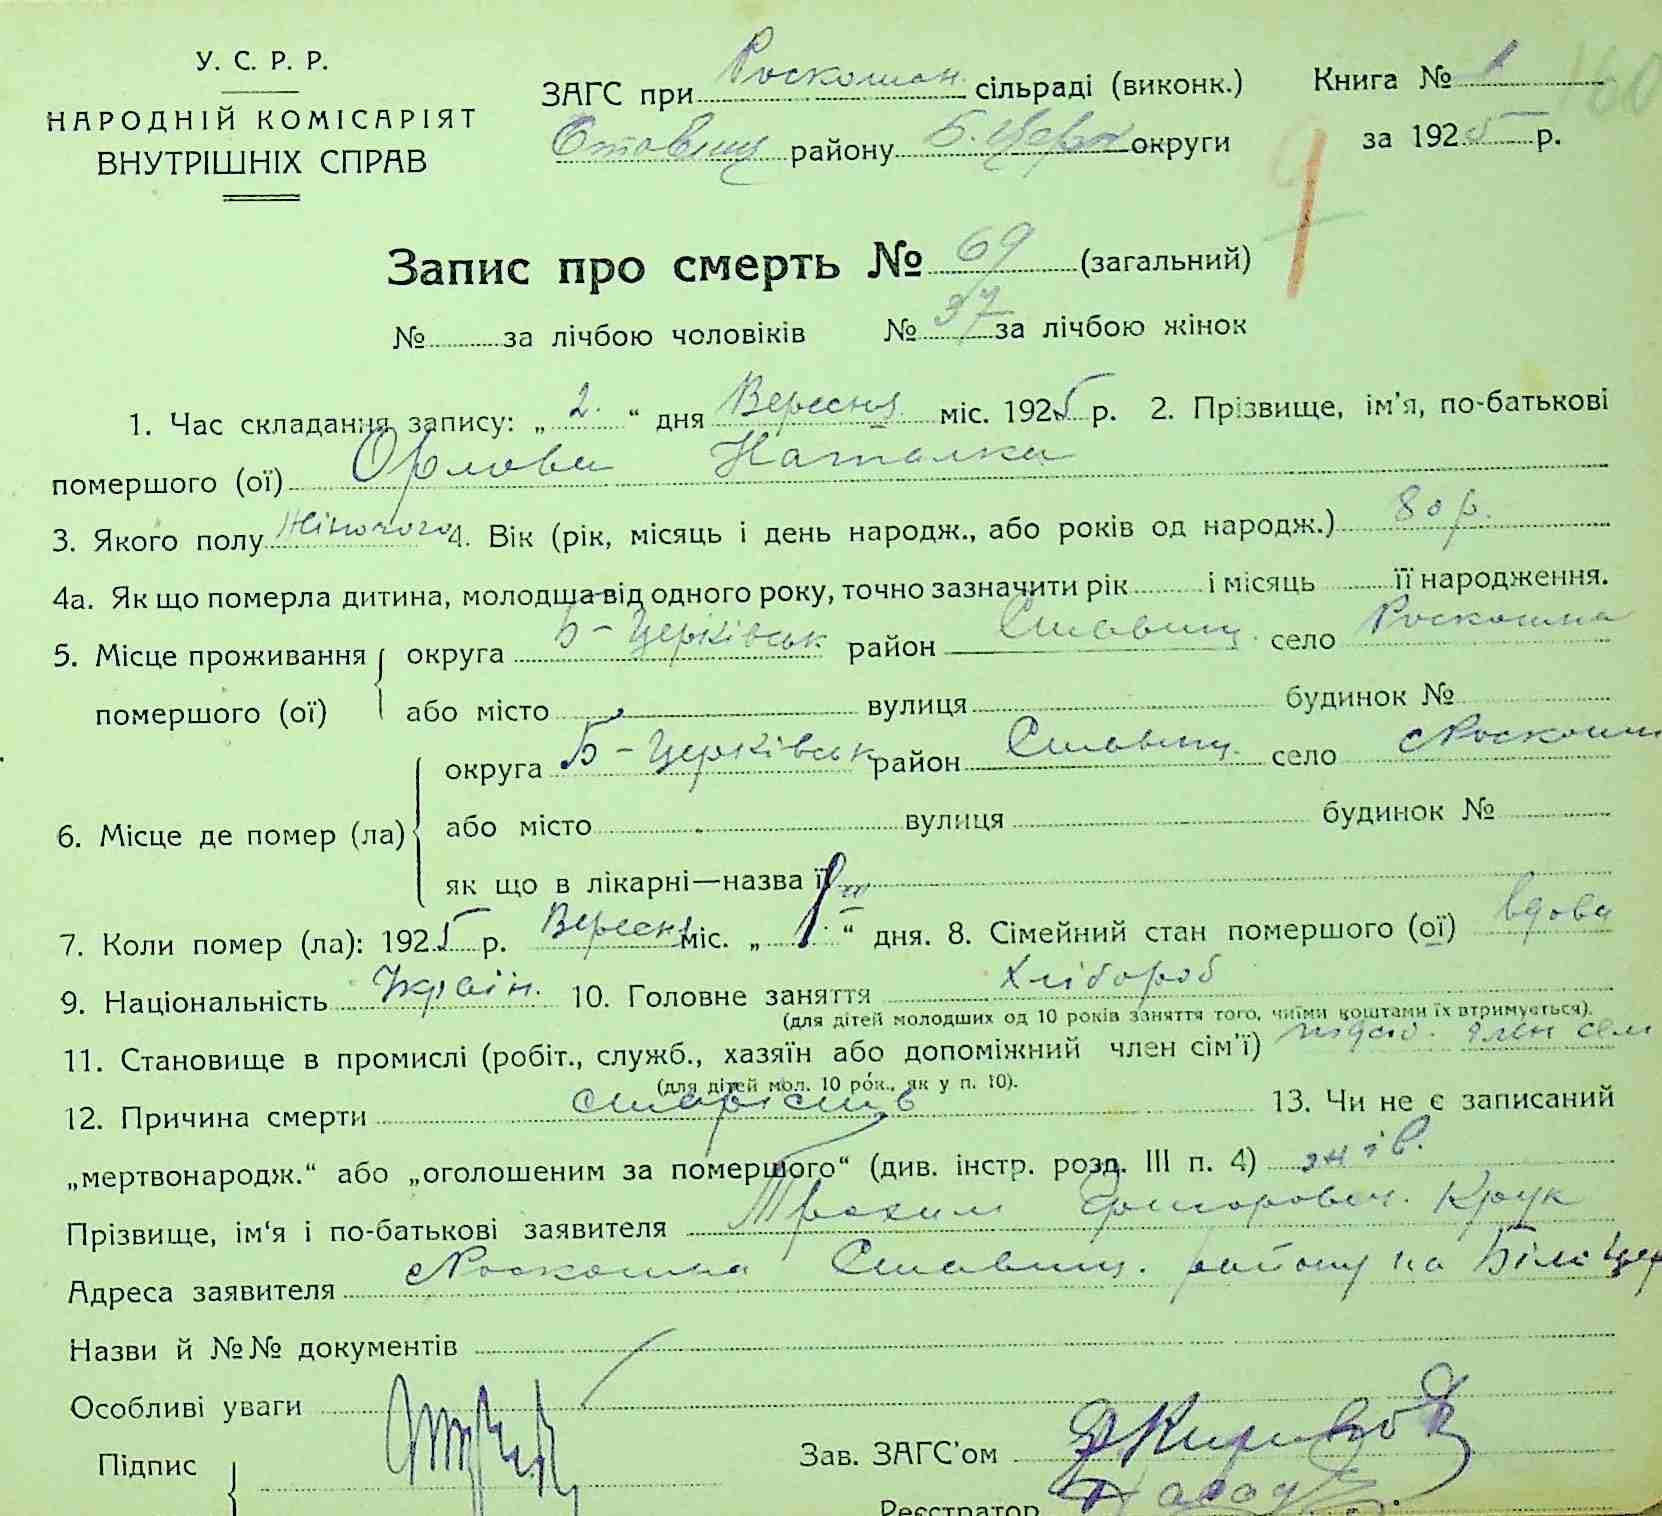 У. С. Р. Р.
НАРОДНІЙ КОМІСАРІЯТ
ВНУТРІШНІХ СПРАВ
ЗАГС при Роскошан. сільраді (виконк.) Книга № 1 160
Ставищ району Б. Церк округи за 1925 р.
Запис про смерть № 69 (загальний)
№ за лічбою чоловіків № 37 за лічбою жінок
1. Час складання запису: „ 2. “ дня Вересня міс. 1925 р. 2. Прізвище, ім'я, по-батькові
помершого (ої) Орлова Наталка
3. Якого полу Жіночого 4. Вік (рік, місяць і день народж., або років од народж.) 80 р.
4а. Як що померла дитина, молодша від одного року, точно зазначити рік і місяць її народження.
5. Місце проживання помершого (ої) округа Б-Церківськ район Ставищ. село Роскошна
або місто вулиця будинок №
6. Місце де помер (ла) округа Б-Церківськ район Ставищ. село Роскошн
або місто вулиця будинок №
як що в лікарні—назва її
7. Коли помер (ла): 1925 р. Вересня міс. „ 1 “ дня. 8. Сімейний стан помершого (ої) вдова
9. Національність Україн. 10. Головне заняття хлібороб
(для дітей молодших од 10 років заняття того, чиїми коштами їх втримується).
11. Становище в промислі (робіт., служб., хазяїн або допоміжний член сім'ї) член сем
(для дітей мол. 10 рок., як у п. 10).
12. Причина смерти старість 13. Чи не є записаний
„мертвонародж.“ або „оголошеним за помершого“ (див. інстр. розд. III п. 4)
Прізвище, ім'я і по-батькові заявителя Трохим Григорович. Крук
Адреса заявителя Роскошна Ставищ. району на Біло Цер
Назви й №№ документів
Особливі уваги
Підпис
Зав. ЗАГС'ом
Реєстратор